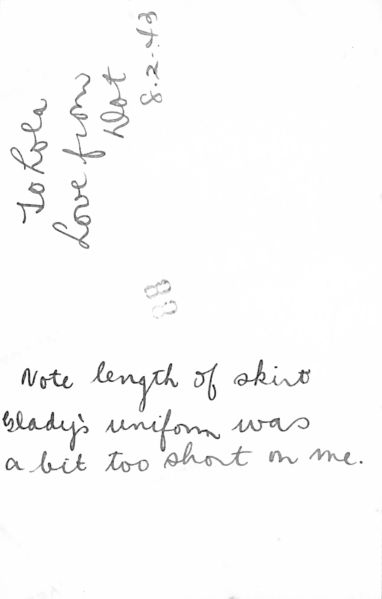 To Lola
Love from
Dot
8.2.43
88
Note length of skirt
Glady's uniform was
a bit too short on me.